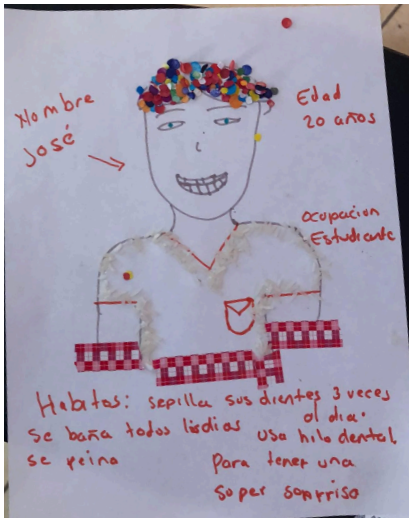 Nombre
José
Edad
20 años
Ocupacion
Estudiante
Habitos: sepilla sus dientes 3 veces
al dia.
Se baña todos los dias usa hilo dental
se peina Para tener una
super sonrisa